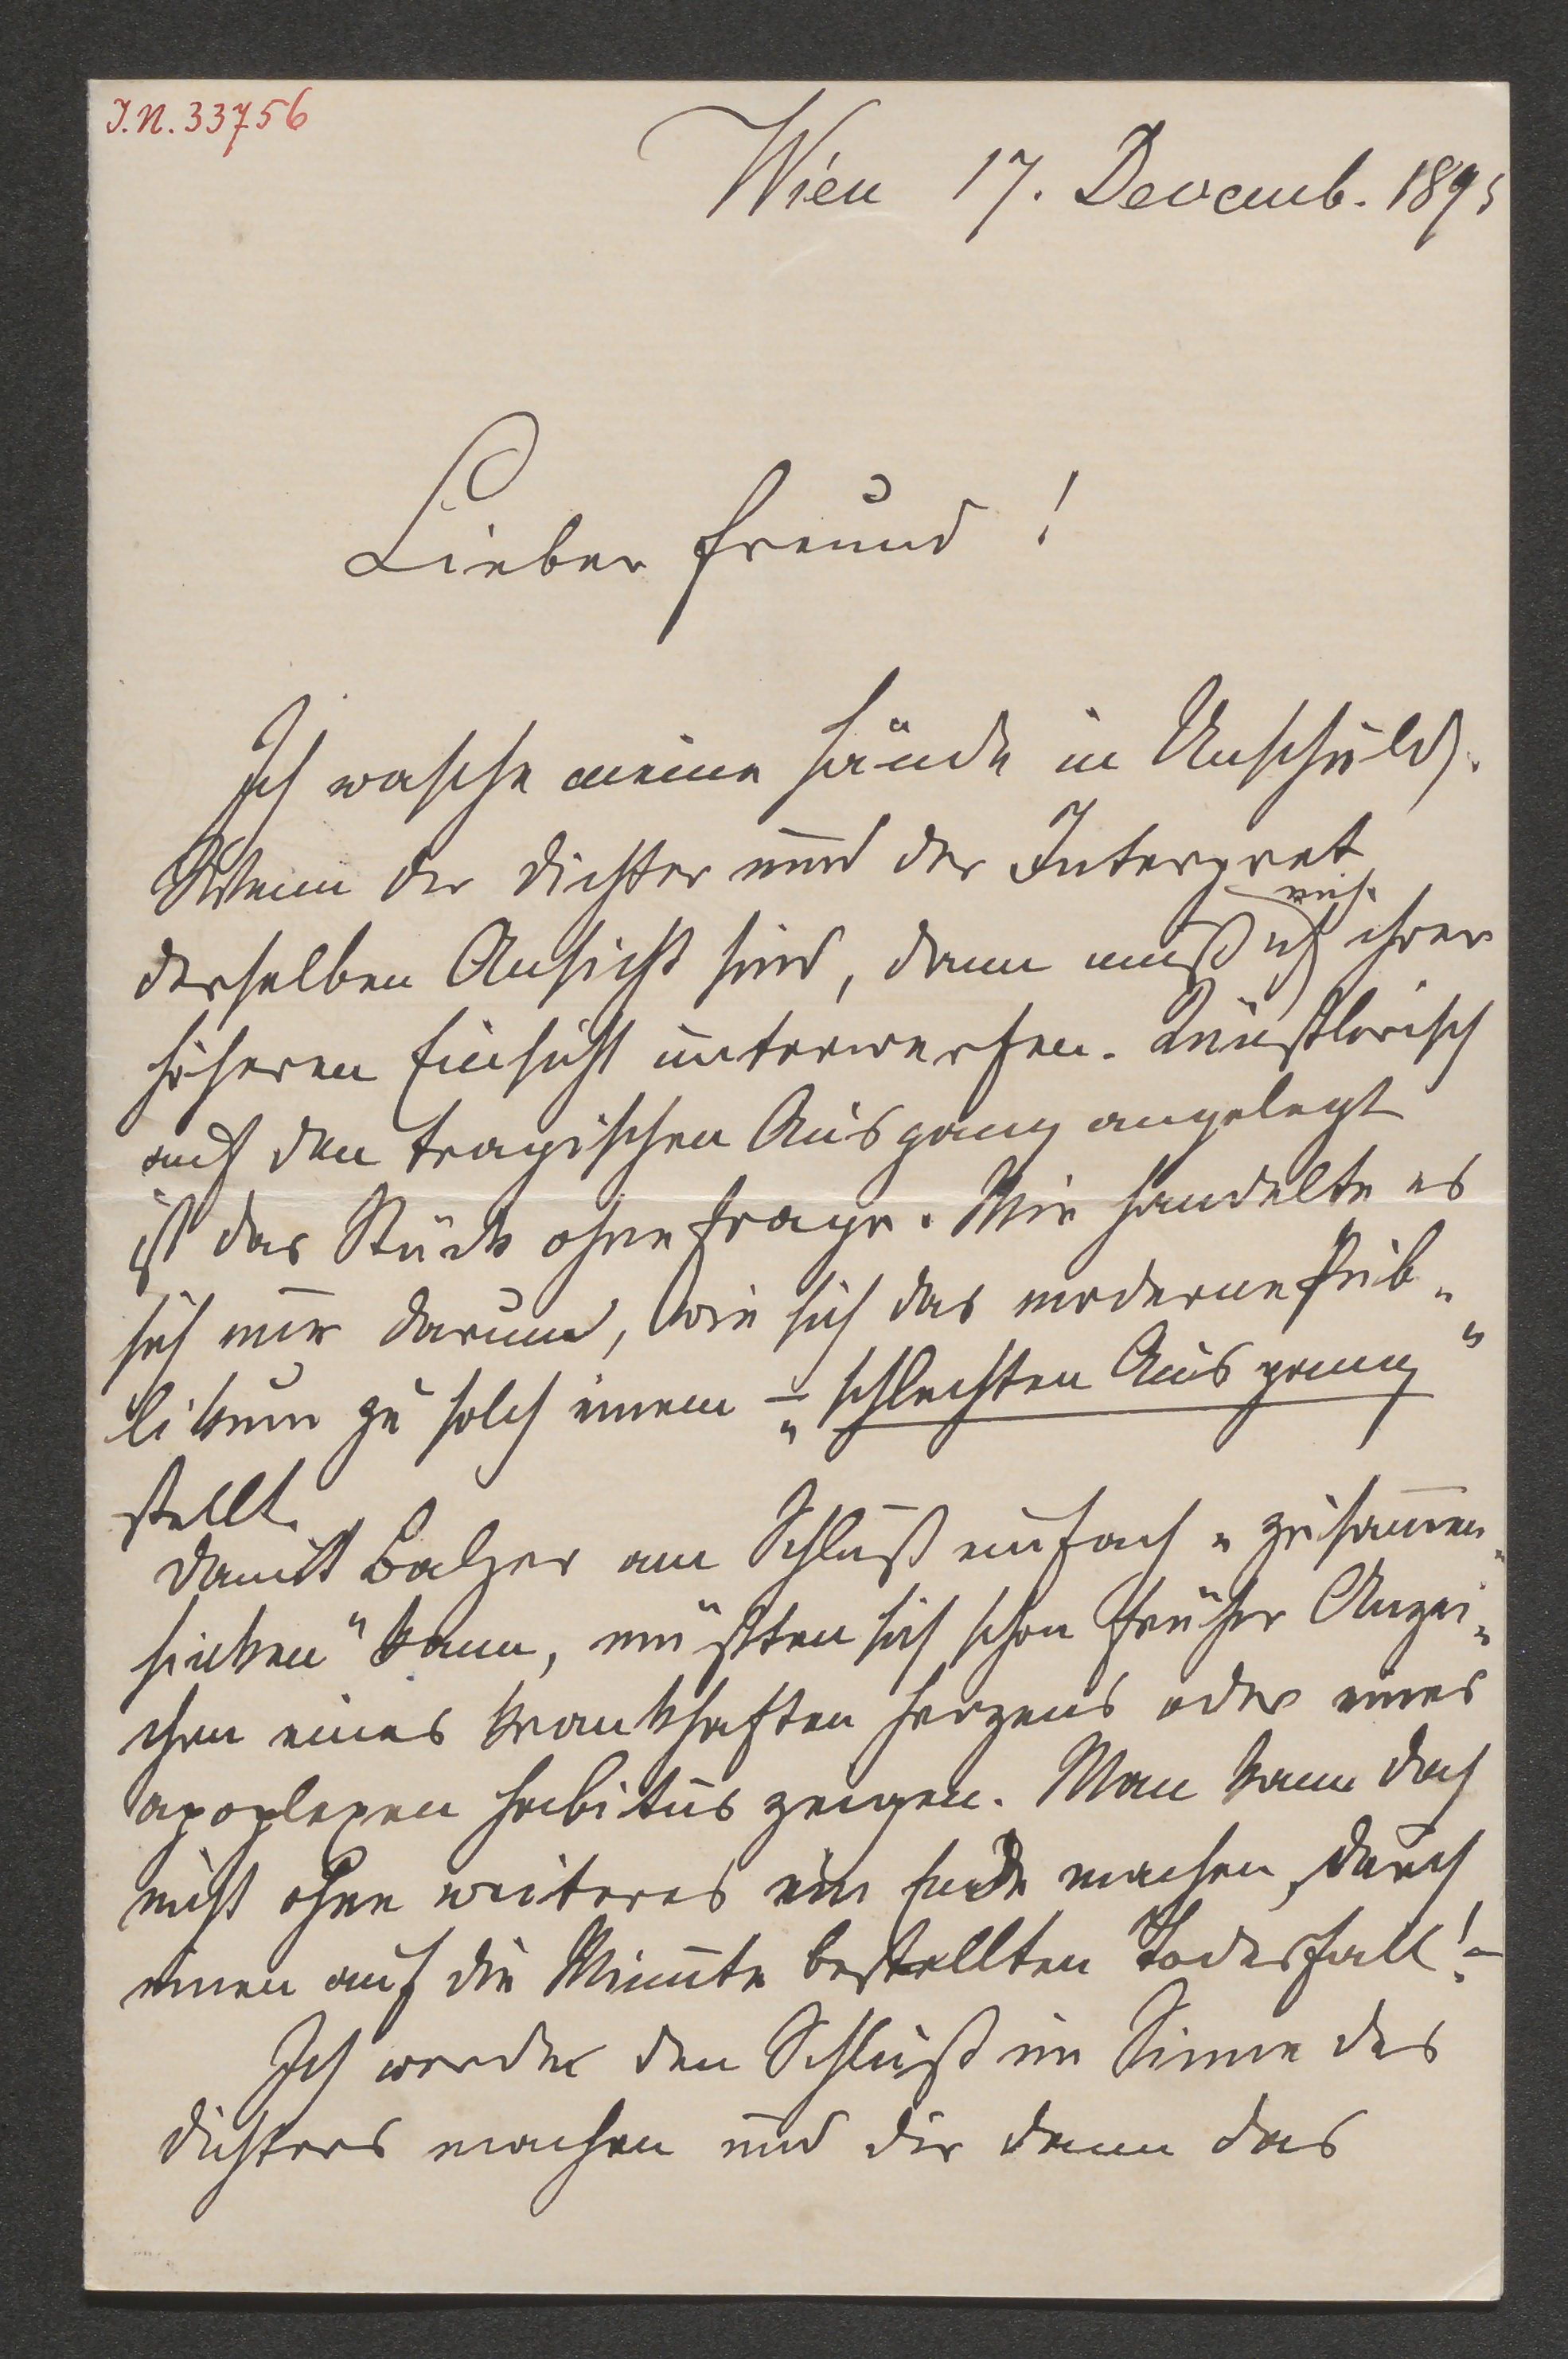 I.N. 33756
Wien 17. Decemb. 1895
Lieber Freund!
Ich wasche meine Hände in Unschuld.
Wenn der Dichter und der Interpret
derselben Ansicht sind, dann muß ich mich ihrer
höheren Einsicht unterwerfen. Künstlerisch
auf den tragischen Ausgang angelegt
ist das Stück ohne Frage. Mir handelte es
sich nur darum, wie sich das moderne Pub„
likum zu solch einem – „schlechten Ausgang“
stellt.
Damit Balzer am Schluß einfach „zusam̅en„
sinken“ kann, müßten sich schon früher Anzei„
chen eines krankhaften Herzens oder eines
apoplexen Habitus zeigen. Man kann doch
nicht ohne weiteres ein Ende machen, durch
einen auf die Minute bestellten Todesfall! –
Ich werde den Schluß im Sinne des
Dichters machen und dir dann das